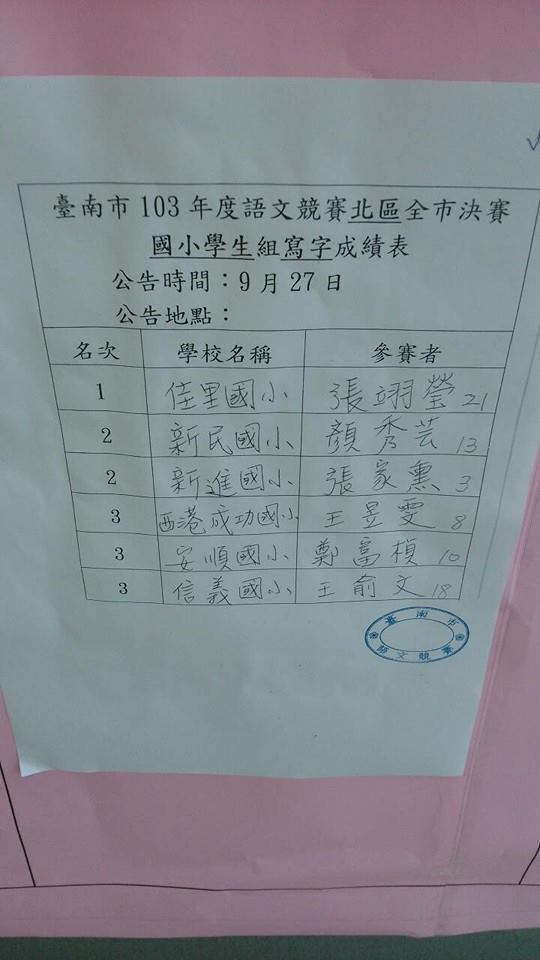 臺南市103年度語文競賽北區全市決賽
國小學生組寫字成績表
公告時間：9月27日
公告地點：
名次 學校名稱 參賽者
1 佳里國小 張翊瑩 21
2 新民國小 顏秀芸 13
2 新進國小 張家熏 3
3 西港成功國小 王昱雯 8
3 安順國小 鄭富楨 10
3 信義國小 王俞文 18
臺南市
語文競賽